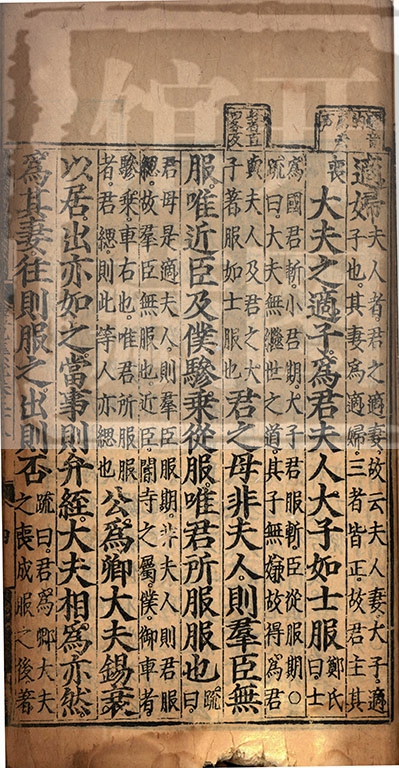 適婦夫人者君之適妻故云夫人妻大子適
子也其妻爲適婦三者皆正故君主其
喪 大夫之適子爲君夫人大子如士服鄭氏
曰士
爲國君斬小君期大子君服斬臣從服期○
疏曰大夫無繼世之道其子無嫌故得爲君
與夫人及君之大
子著服如士服也
君之母非夫人則羣臣無
服唯近臣及僕驂乘從服唯君所服服也疏
曰
君母是適夫人則羣臣服期非夫人則君服
緦故羣臣無服也近臣閽寺之屬僕御車者
驂乘車右也唯君所服服
者君緦則此等人亦緦也
公爲卿大夫錫衰
以居出亦如之當事則弁絰大夫相爲亦然
爲其妻往則服之出則否疏曰君爲卿大夫
之喪成服之後著